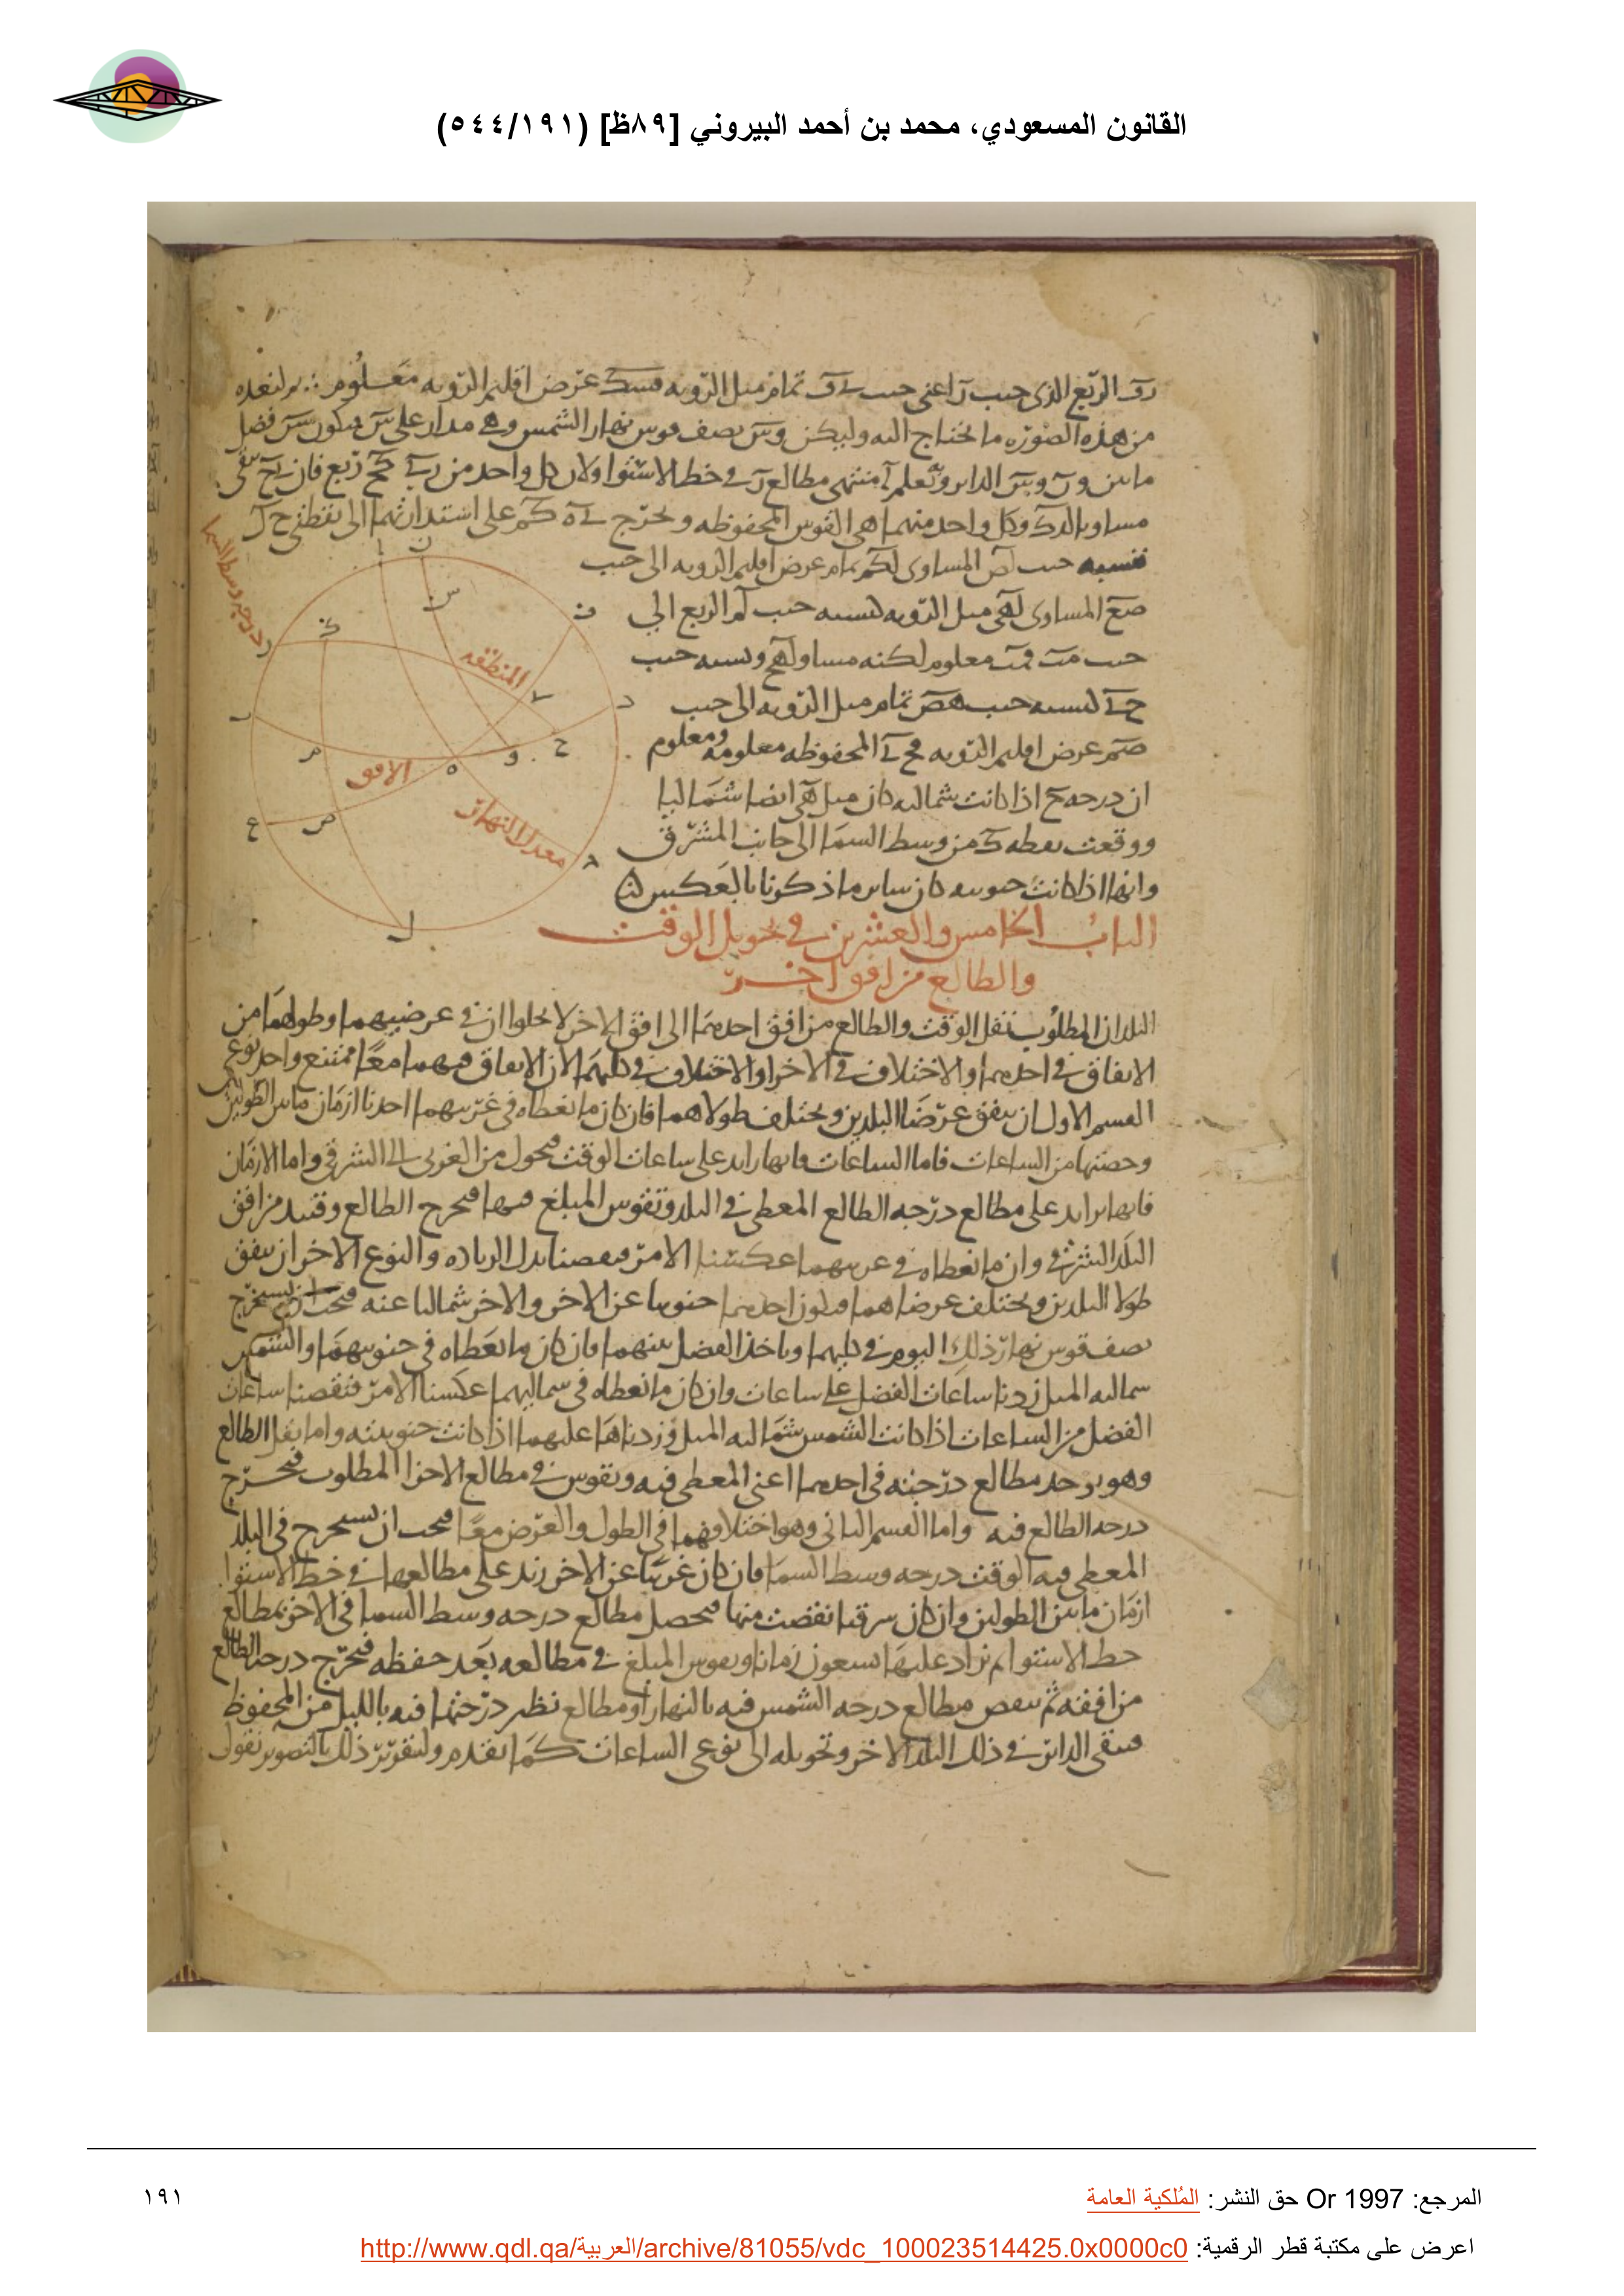 القانون المسعودي، محمد بن أحمد البيروني [٨٩ظ] (٥٤٤/١٩١)
الربع الذي جيب اعني جيب تمام ميل الرويه عرض اقليم الرويه معلوم
من هذه الصوره ما يحتاج اليه وليكن نصف قوس نهار الشمس مدار على فضل
ما بين الداير مطالع في خط الاستوا ولان كل واحد من ربع فان
وكل واحد منهما هي القوس المحفوظه ونخرج على استدارتهما الى نقطتي ح ل
فنسبه جيب المساوي تمام عرض اقليم الرويه الى جيب
المساوي ميل الرويه كنسبه جيب الربع الى
جيب معلوم لكنه مساو ونسبه جيب
كنسبه جيب تمام ميل الرويه الى جيب
عرض اقليم الرويه المحفوظه معلومه ومعلوم
ان درجه ح اذا كانت شماليه كان ميل ايضا شماليا
ووقعت نقطه من وسط السما الى جانب المشرق
وانها اذا كانت جنوبيه كان ساير ما ذكرنا بالعكس
درجه وسط السما
المنطقه
الافق
معدل النهار
الباب الخامس والعشرين في تحويل الوقت
والطالع من افق اخر
البلدان المطلوب نقل الوقت والطالع من افق احدهما الى افق الاخر لا يخلوا ان في عرضيهما وطولهما من
الاتفاق في احدهما والاختلاف في الاخر او الاختلاف في كليهما لان الاتفاق فيهما معا ممتنع واحد نوعي
القسم الاول ان يتفق عرضا البلدين ويختلف طولاهما فان كان ما نعطاه في غربيهما اخذنا ازمان ما بين الطولين
وحصتها من الساعات فاما الساعات فانها تزاد على ساعات الوقت فيحول من الغربي الى الشرقي واما الازمان
فانها تزاد على مطالع درجه الطالع المعطى في البلد وتقوس المبلغ فيها فيخرج الطالع وقتيد من افق
البلد الشرقي وان ما نعطاه في عكسنا الامر فنقصنا بدل الزياده والنوع الاخر ان يتفق
طولا البلدين ويختلف عرضاهما فيكون احدهما جنوبيا عن الاخر والاخر شماليا عنه فيجب ان يستخرج
نصف قوس نهار ذلك اليوم في كليهما وناخذ الفضل بينهما فان كان ما نعطاه في جنوبيهما والشمس
شماليه الميل زدنا ساعات الفضل على ساعات وان كان ما نعطاه في شماليهما عكسنا الامر فنقصنا ساعات
الفضل من الساعات اذا كانت الشمس شماليه الميل وزدناها عليهما اذا كانت جنوبيته واما نقل الطالع
وهو يوخذ مطالع درجته في احدهما اعني المعطى فيه ويقوس في مطالع الاخر المطلوب فيخرج
درجه الطالع فيه واما القسم الثاني وهو اختلافهما في الطول والعرض معا فيجب ان نستخرج في البلد
المعطى فيه الوقت درجه وسط السما فان كان غربيا عن الاخر زيد على مطالعها في خط الاستوا
ازمان ما بين الطولين وان كان شرقيا نقصت منها فيحصل مطالع درجه وسط السما في الاخر بمطالع
خط الاستوا ثم تزاد عليها تسعون زمانا ويقوس المبلغ في مطالعه بعد حفظه فيخرج درجه الطالع
من افقه ثم ينقص مطالع درجه الشمس فيه بالنهار او مطالع نظير درجتها فيه بالليل من المحفوظ
فيبقى الداير في ذلك البلد الاخر وتحويله الى نوعي الساعات كما تقدم ولتقرير ذلك بالتصوير نقول
المرجع: Or 1997 حق النشر: المُلكية العامة
١٩١
اعرض على مكتبة قطر الرقمية: http://www.qdl.qa/العربية/archive/81055/vdc_100023514425.0x0000c0